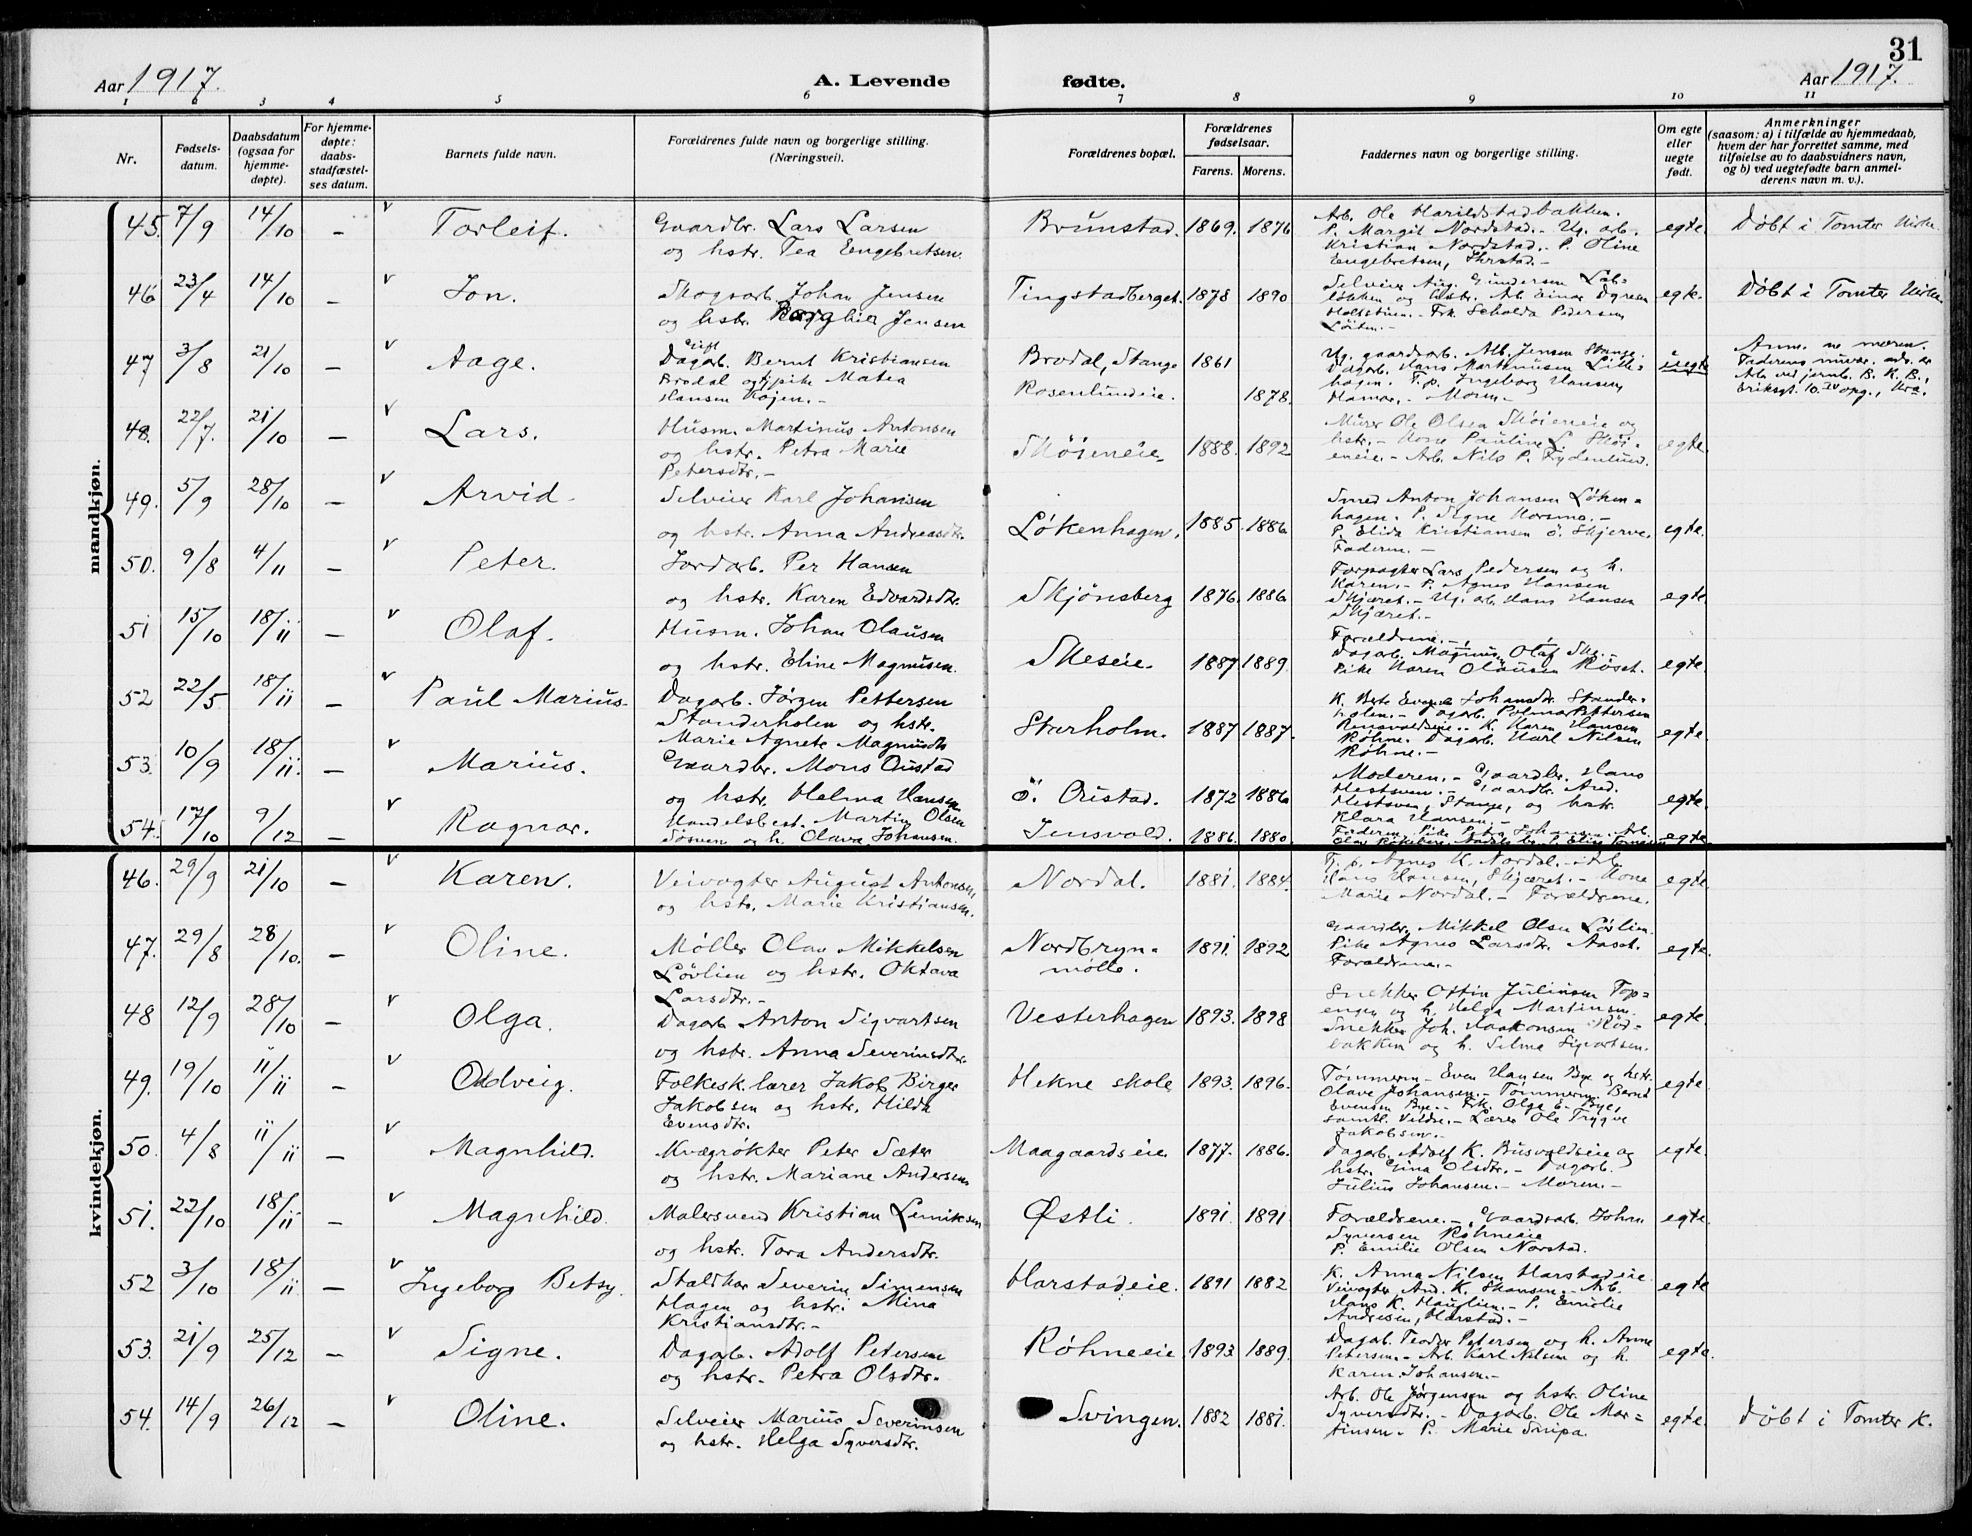 31
Aar 1917.
A. Levende fødte.
Aar 1917.
1 2 3 4 5 6 7 8 9 10 11
Nr.
Fødsels-
datum.
Daabsdatum
(ogsaa for
hjemme-
døpte).
For hjemme-
døpte:
daabs-
stadfæstel-
ses datum.
Barnets fulde navn.
Forældrenes fulde navn og borgerlige stilling.
(Næringsvei).
Forældrenes bopæl.
Forældrenes
fødselsaar.
Farens. Morens.
Faddernes navn og borgerlige stilling.
Om egte
eller
uegte
født.
Anmerkninger
(saasom: a) i tilfælde av hjemmedaab,
hvem der har forrettet samme, med
tilføielse av to daabsvidners navn,
og b) ved uegtefødte barn anmel-
derens navn m. v.).
mandkjøn.
45. 7/9 14/10 – Torleif. Gaardbr. Lars Larsen Brunstad. 1869. 1876 Arb. Ole Harildstadbakken. egte. Døbt i Tomter Kirke.
og hstr. Tea Engebretsen.
P. Margit Nordstad. - Ug. arb.
Kristian Nordstad. P. Oline
Engebretsen,
46 23/4 14/10 – Jon. Skogsarb. Johan Jensen Tingstadberget. 1878 1890 Selveier Aug. Gundersen egte. Døbt i Tomter Kirke.
og hstr. Jensen
og hstr. Arb. Einar
Frk. Pedersen
Løiten. -
47 3/8 21/10 – Aage. Gift
Dagarb. Bernt Kristiansen Brodal, Stange 1861 Ug. gaardsarb. Alb. Jensen Stange. uegte Anm. av moren.
Brodal og pike Matea Rosenlundeie. 1878.
Hansen Kojen. -
Dagarb. Hans Martinusen
hagen. F.p. Ingeborg Hansen,
Hamar. - Moren. -
Faderens
Arb. ved jernb. B. K. B.,
Eriksgt. 10. IV opg., Kra.
48. 22/7. 21/10 – Lars. Husm. Martinus Antonsen Skøieneie. 1888. 1892 Murer Ole Olsen Skøieneie og egte.
og hstr. Petra Marie
Petersdtr. -
hstr. - Kone Pauline L. Skøi-
eneie. - Arb. Nils P. Frydenlund.
49. 5/9 28/10 – Arvid. Selveier Karl Johansen Løkenhagen. 1885. 1886 Smed Anton Johansen Løken- egte.
og hstr. Anna Andreasdtr.
hagen. P. Signe Horsmo. -
P. Elida Kristiansen ö. Skjerve.
Faderen. -
50. 9/8 4/11 – Peter. Jordarb. Per Hansen Skjønsberg 1876. 1886 Forpagter Lars Pedersen og h. egte.
og hstr. Karen Edvardsdtr.
Karen. - P. Agnes Hansen
Skjæret. - Ug. arb. Hans Hansen
Skjæret. -
51 15/10 18/11 – Olaf. Husm. Johan Olausen Skeseie. 1887 1889. Forældrene. - egte.
og hstr. Eline Magnusen.
Dagarb. Magnus Olaf Ske. -
Pike Karen Olausen Røset.
52 22/5 18/11 – Paul Marius. Dagarb. Jørgen Pettersen Storholm. 1887 1887. egte.
Stonderholen og hstr.
Marie Agnete Magnusdtr.
Dagarb. Polmar Pettersen
K. Karen Hansen
Røhne. Dagarb. Karl Nilsen
Røhne. -
53. 10/9 18/11. – Marius. Gaardbr. Mons Oustad ö. Oustad. 1872 1886 Moderen. - Gaardbr. Hans egte.
og hstr. Helma Hansen.
Hestsven. - Gaardbr. And.
Hestsven, Stange, og hstr.
Klara Hansen. -
54. 17/10 9/12 – Ragnar. Handelsbest. Martin Olsen Jensvold. 1886. 1880. egte.
og h. Olava Johansen.
kvindekjøn.
46. 29/9 21/10 – Karen. Veivogter August Antonsen Nordal. 1881. 1884. F. p. Agnes K. Nordal. - Arb. egte.
og hstr. Marie Kristiansen.
Hans Hansen, Skjæret. - Kone
Marie Nordal. - Forældrene.
47. 29/8 28/10. – Oline. Møller Olav Mikkelsen Nordbryn- 1891. 1892 Gaardbr. Mikkel Olsen Løvlien. egte.
Løvlien og hstr. Oktava mølle.
Larsdtr. -
Pike Agnes Larsdtr. Aaset.
Forældrene. -
48 12/9 28/10 – Olga. Dagarb. Anton Sigvartsen Vesterhagen 1893. 1898 Snekker Ottin Julinsen Top= egte.
og hstr. Anna Severinsdtr.
engen og h. Helga Martinsen.
Snekker Joh. Haakonsen Rød-
bakken og h. Selma Sigvartsen.
49. 19/10 11/11 – Oddveig. Folkesk.lærer Jakob Birger Hekne skole 1893. 1896. Tømmerm. Even Hansen Bye og hstr. egte.
Jakobsen og hstr. Hilda
Evensdtr.
Olave Johansen. - Tømmerm. Bernt
Evensen Bye. - Frk. Olga E. Bye,
samtl. Veldre. - Lærer Ole Trygve
Jakobsen. -
50. 4/8 11/11 – Magnhild. Kvægrøkter Peter Sæter Maagaardseie 1877. 1886. Dagarb. Adolf K. Busvoldseie og egte.
og hstr. Mariane Andersen.
hstr. Gina Olsdtr. - Dagarb.
Julius Johansen. - Moren. -
51. 22/10 18/11 – Magnhild. Malersvend Kristian Lemiksen Østli. 1891. 1891 Forældrene. - Gaardsarb. Johan egte.
og hstr. Tora Andersdtr.
Syversen Røhneeie
P. Emilie Olsen Norstad.
52 3/10 18/11 – Ingeborg Betsy. Staldkar Severin Simensen Harstadeie. 1891 1882 K. Anna Nilsen Harstadeie egte
Hagen og hstr. Mina
Kristiansdtr. -
Veivogter And. K. Stensen. - Arb.
Hans K. Hauglien. - P. Emilie
Andresen, Harstad. -
53. 21/9 25/12 – Signe. Dagarb. Adolf Petersen Røhneeie 1893 1889. Dagarb. Teodor Petersen og h. Anne egte.
og hstr. Petra Olsdtr.
Petersen. - Arb. Karl Nilsen og h.
Karen Johansen. -
54. 14/9 26/12 – Oline. Selveier Marius Severinsen Svingen. 1882 1881. Arb. Ole Jørgensen og hstr. Oline egte Døbt i Tomter K.
og hstr. Helga Syversdtr.
Syversdtr. - Dagarb. Ole Mar=
tinsen. P. Marie Snipa.